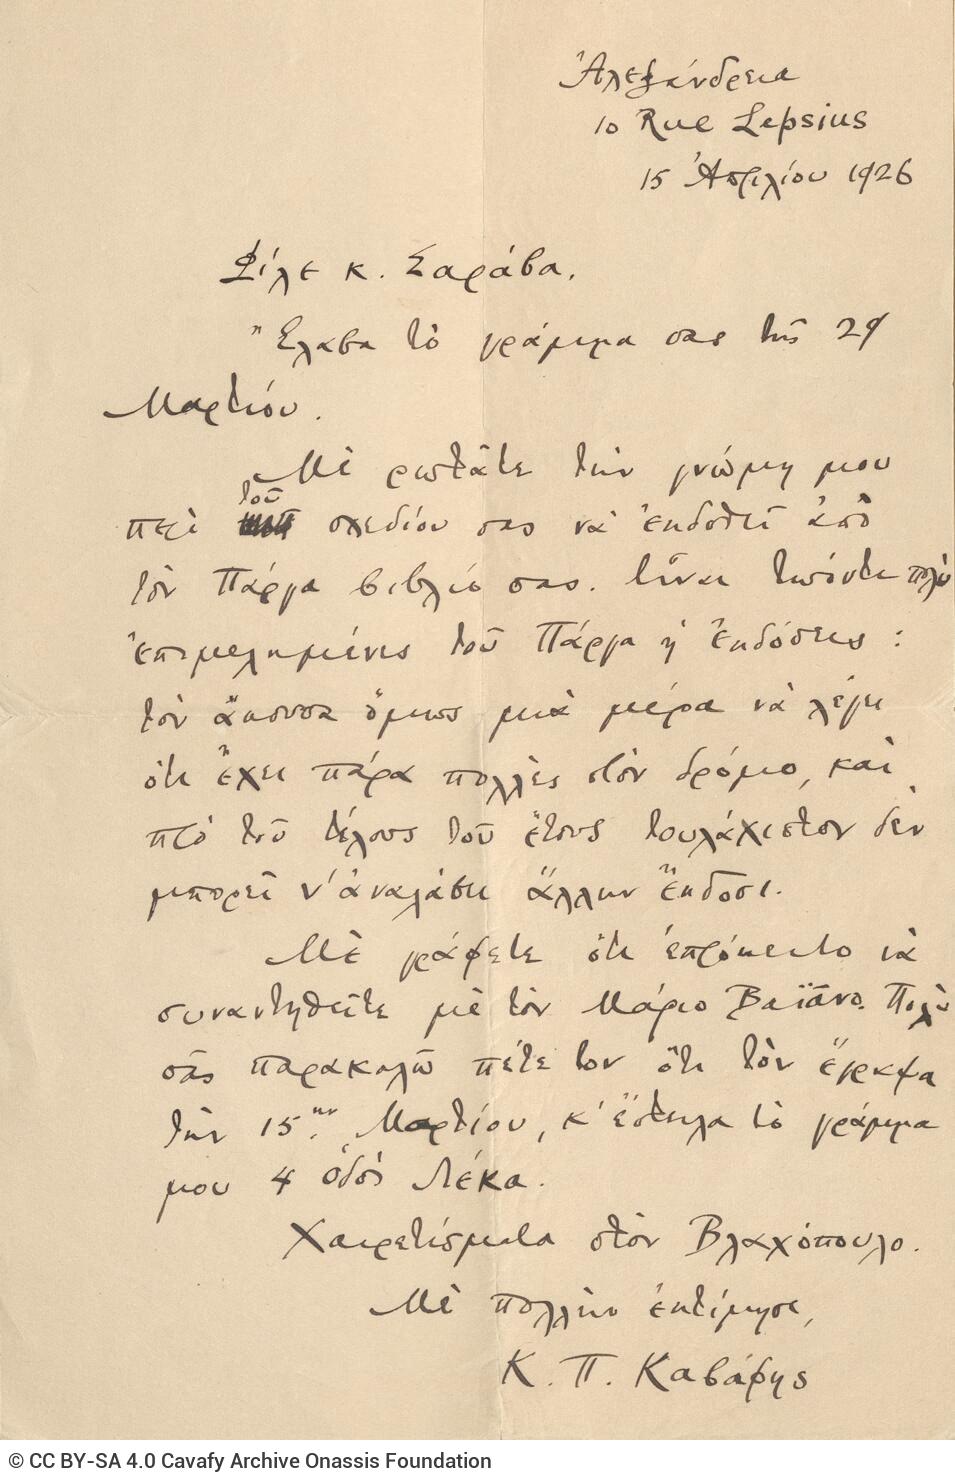 Ἀλεξάνδρεια
10 Rue Lepsius
15 Ἀπριλίου 1926
Φίλε κ. Σαράβα,
Ἔλαβα τὸ γράμμα σας τῆς 29
Μαρτίου.
Μὲ ρωτᾶτε τὴν γνώμη μου
τοῦ
περὶ σχεδίου σας νὰ ἐκδοθεῖ ἀπὸ
τὸν Πάργα βιβλίο σας. Εἶναι τωόντι πολὺ
ἐπιμελημένες τοῦ Πάργα ἡ ἐκδόσεις :
τὸν ἄκουσα ὅμως μιὰ μέρα νὰ λέγει
ὅτι ἔχει πάρα πολλὲς στὸν δρόμο, καὶ
πρὸ τοῦ τέλους τοῦ ἔτους τουλάχιστον δὲν
μπορεῖ ν' ἀναλάβει ἄλλην ἔκδοσι.
Μὲ γράφετε ὅτι ἐπρόκειτο νὰ
συναντηθεῖτε μὲ τὸν Μάριο Βαϊάνο. Πολὺ
σᾶς παρακαλῶ πέτε τον ὅτι τὸν ἔγραψα
τὴν 15ην Μαρτίου, κ' ἔστειλα τὸ γράμμα
μου 4 ὁδὸς Λέκα.
Χαιρετίσματα στὸν Βλαχόπουλο.
Μὲ πολλὴν ἐκτίμησι,
Κ. Π. Καβάφης
© CC BY-SA 4.0 Cavafy Archive Onassis Foundation